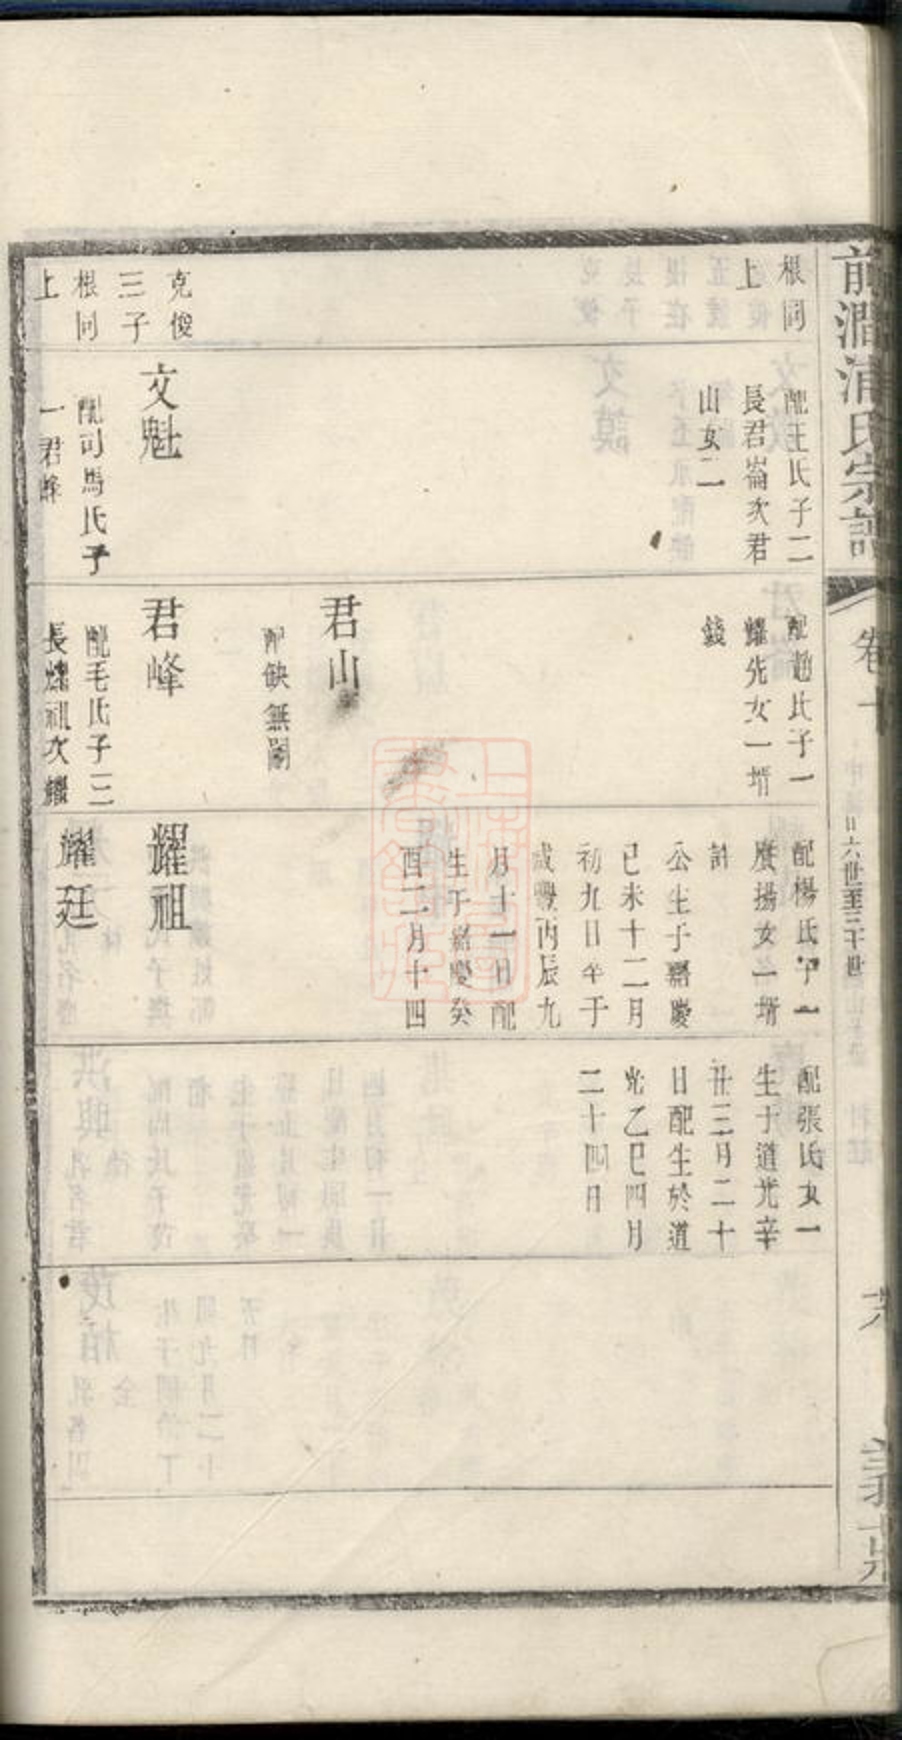 前澗浦氏宗譜
卷十
廿六世至三十世
根同
上
配王氏子二
長君崙次君
山女二
配趙氏子一
耀先女一壻
錢
配楊氏子一
賡揚女一壻
計
公生于嘉慶
己未十二月
初九日卒于
咸豐丙辰九
月十一日配
生于嘉慶癸
酉二月十四
配張氏女一
生于道光辛
丑三月二十
日配生於道
光乙巳四月
二十四日
克俊
三子
根同
上
文魁
配司馬氏子
一君峰
君山
配缺無嗣
君峰
配毛氏子三
長耀祖次耀
耀祖
耀廷